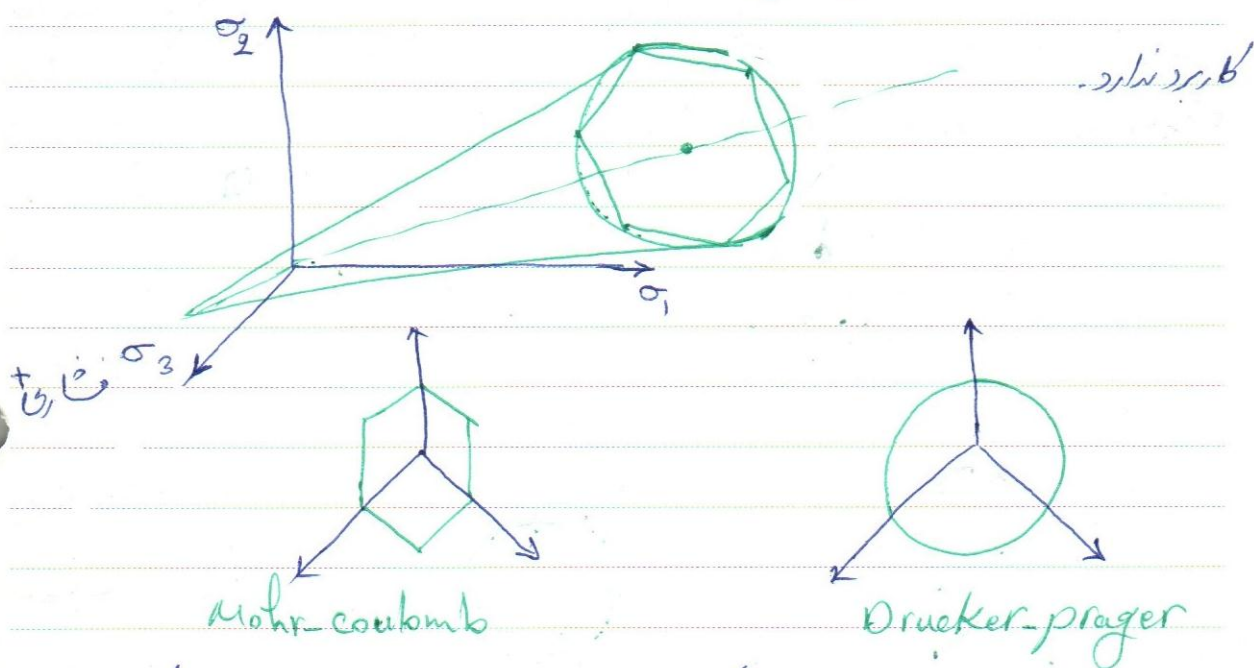 σ2
کاربرد ندارد.
σ1
σ3
فشاری +
Mohr-coulomb
Drucker-prager